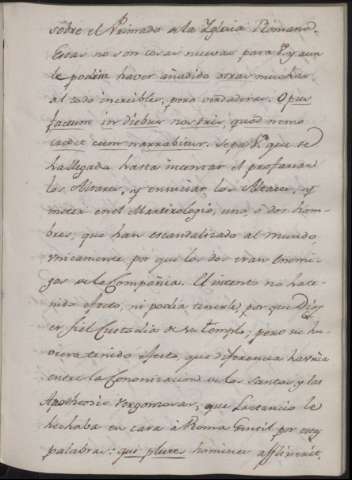 sobre el Primado de la Iglesia Romana.
Estas no son cosas nuevas para V. y aun
le podria haver añadido otras muchas,
al todo increibles, pero verdaderas. Opus
factum in diebus nostris, quod nemo
credet cum narrabitur. Sepa V. que se
ha llegado hasta intentar el profanar
los Altares, y ensuciar los Altares, y
meter en el Martirologio, uno, ò dos hom-
bres, que han escandalizado al mundo,
unicamente por que los dos eran enemi-
gos de la Compañia. El intento no ha te-
nido efecto, ni podia tenerle por que Dios
es fiel Custodio de su templo; pero si hu-
viera tenido efecto, que diferencia havria
entre la Cononizacion de los Santos, y las
Apotheosis vergonzosas, que Lactancio le
hechaba en cara à Roma Gentil por estas
palabras: qui plures hominum afflixerit